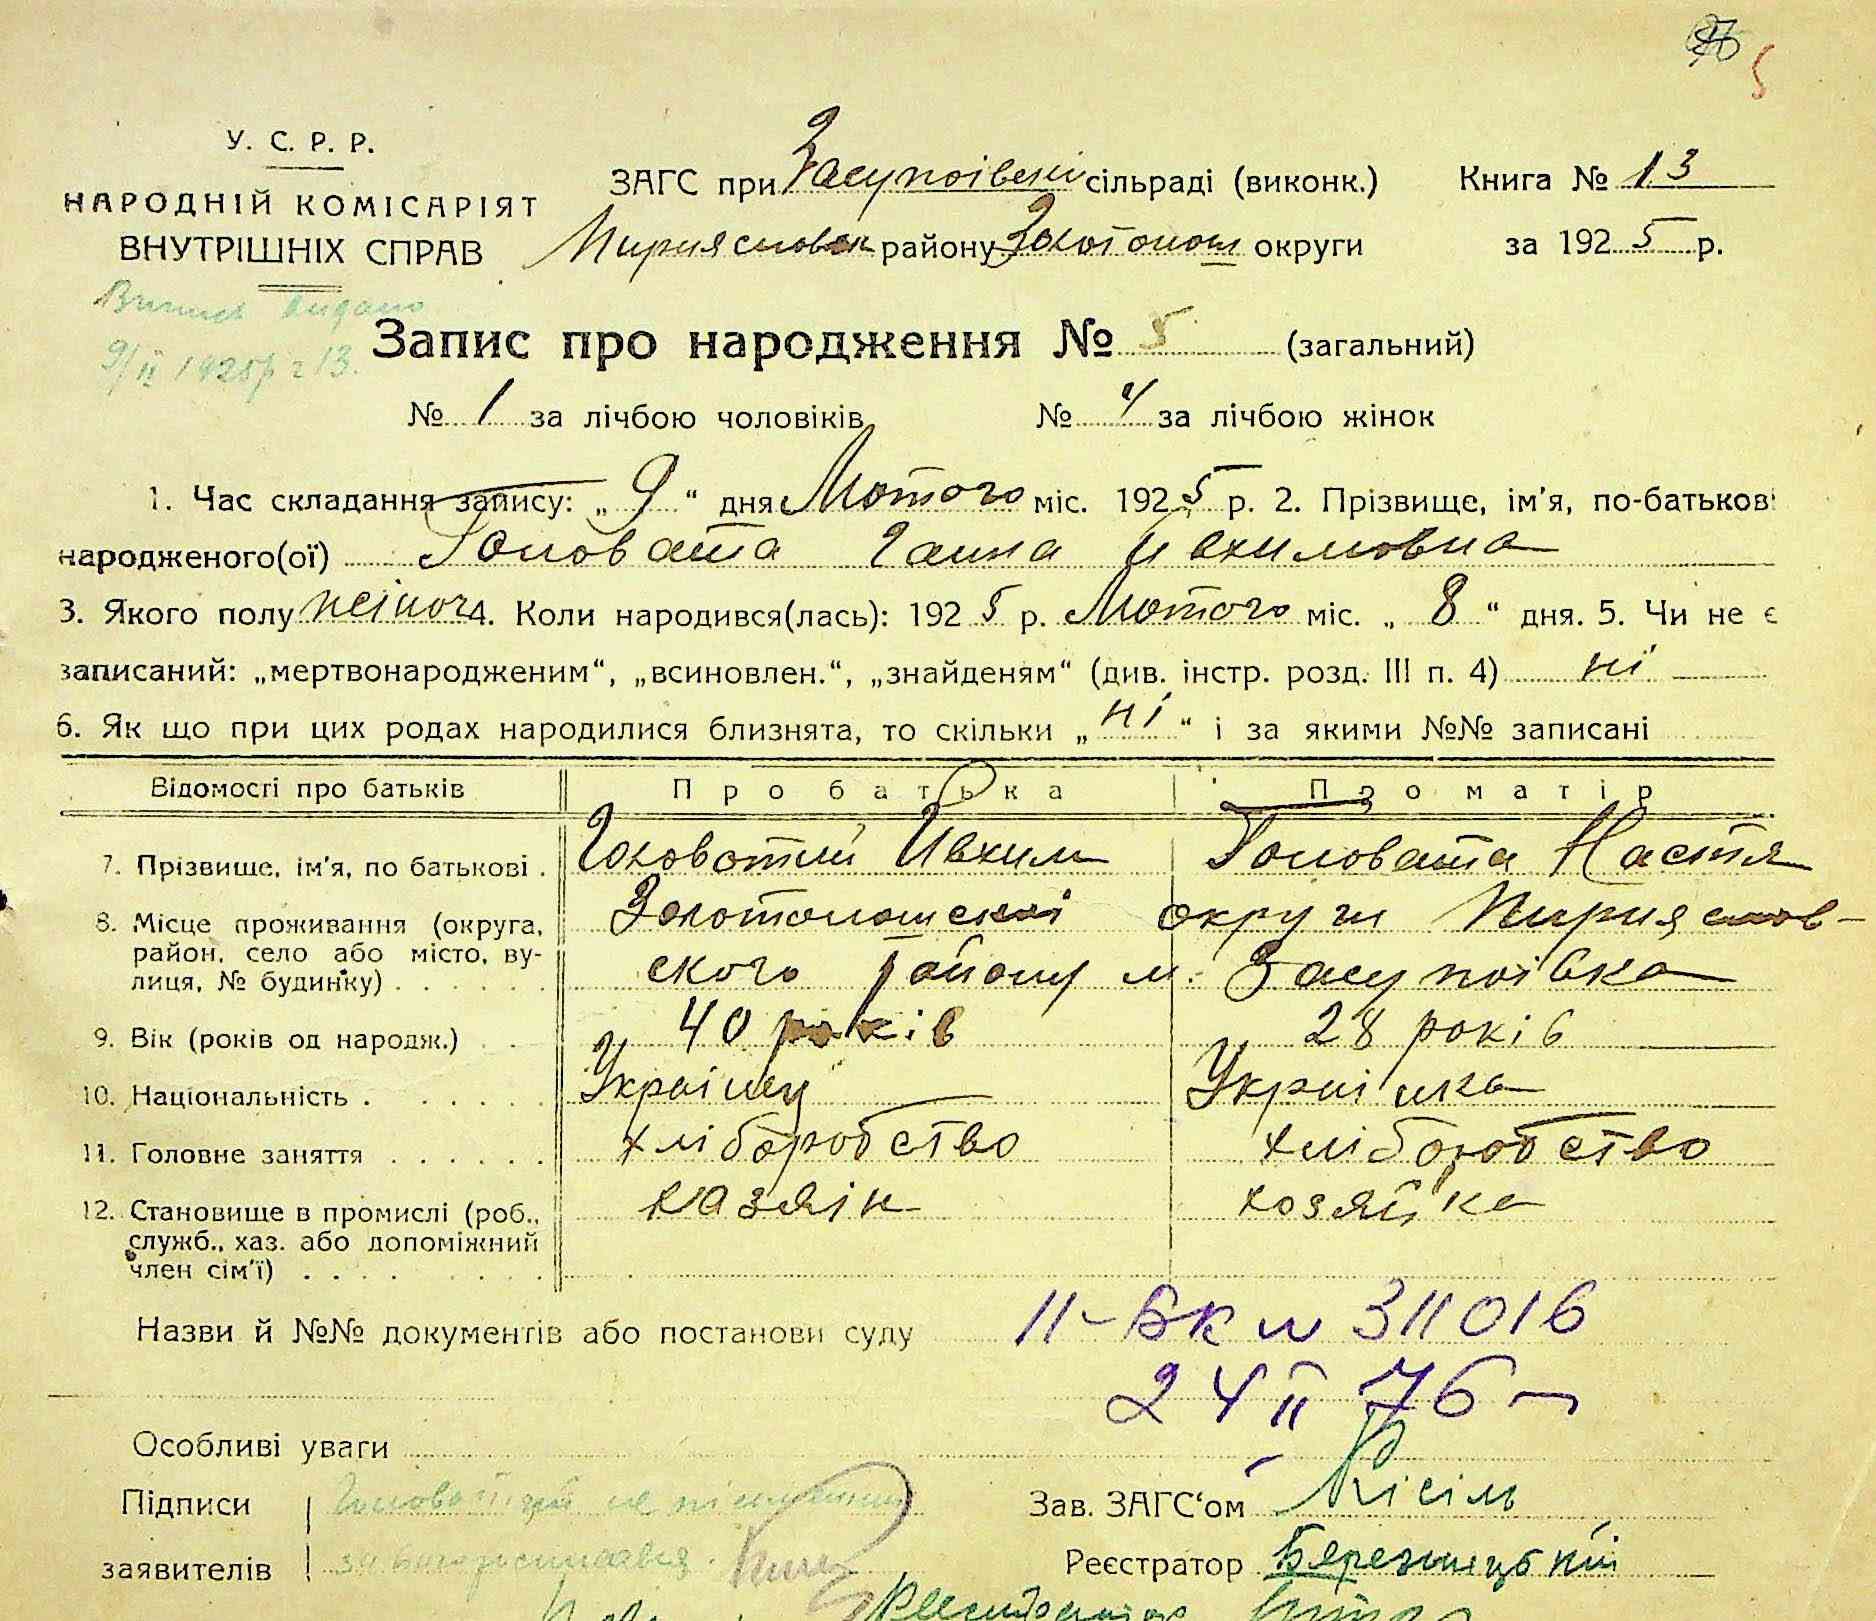 5
У. С. Р. Р.
НАРОДНІЙ КОМІСАРІЯТ
ВНУТРІШНІХ СПРАВ
ЗАГС при Засупоівскі сільраді (виконк.)
Пирясловск району Золотонош округи
Книга № 13
за 1925 р.
Випись видано
9/II 1925р № 13.
Запис про народження № 5 (загальний)
№ 1 за лічбою чоловіків № 4 за лічбою жінок
1. Час складання запису: „ 9 “ дня Лютого міс. 1925 р. 2. Прізвище, ім'я, по-батькові
народженого(ої) Головата Ганна Ивхимовна
3. Якого полу жіноч 4. Коли народився(лась): 1925 р. Лютого міс. „ 8 “ дня. 5. Чи не є
записаний: „мертвонародженим“, „всиновлен.“, „знайденям“ (див. інстр. розд. III п. 4) ні
6. Як що при цих родах народилися близнята, то скільки „ ні “ і за якими №№ записані
Відомості про батьків Про батька Про матір
7. Прізвище, ім'я, по батькові . Головотий Ивхим Головата Настя
8. Місце проживання (округа, район, село або місто, вулиця, № будинку) Золотоношскоі округи Пирясловського району м. Засупоівка
9. Вік (років од народж.) 40 років 28 років
10. Національність . Украінец Украінка
11. Головне заняття хліборобство хліборобство
12. Становище в промислі (роб., служб., хаз. або допоміжний член сім'ї) хазяін хозяйка
Назви й №№ документів або постанови суду II-БК № 311016
24 II 76
Особливі уваги
Підписи
заявителів
Зав. ЗАГС‘ом Кісіль
Реєстратор Березницький